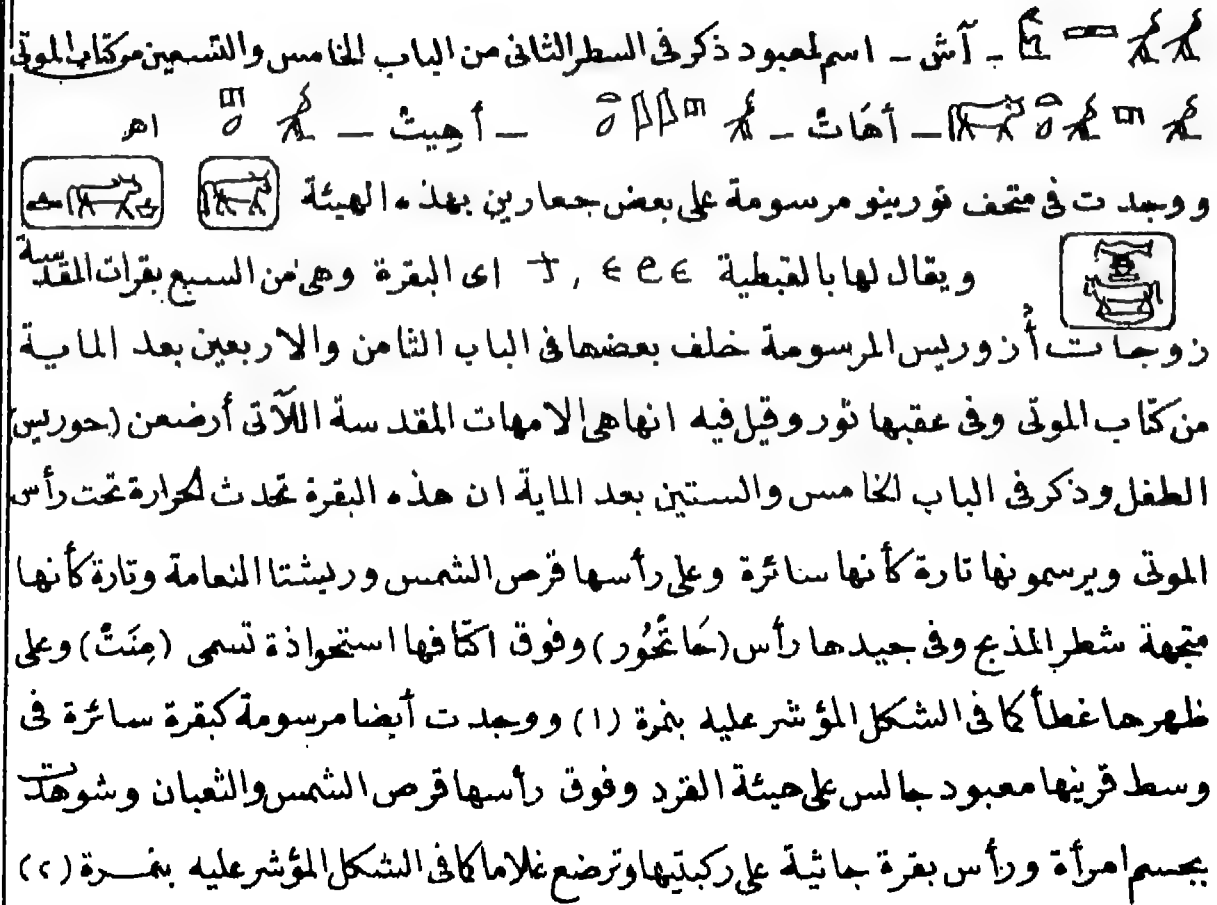 ـ آش ـ اسم لمعبود ذكر فى السطر الثانى من الباب الخامس والتسعين من كتاب الموتى
ـ أهَاتْ ـ ـ أهِيتْ ـ اهـ
ووجدت فى متحف تورينو مرسومة على بعض جعارين بهذه الهيئة
ويقال لها بالقبطية ϯ , ⲉϩⲉ اى البقرة وهى من السبع بقرات المقدسة
زوجات أُزوريس المرسومة خلف بعضها فى الباب الثامن والاربعين بعد الماية
من كتاب الموتى وفى عقبها ثور وقيل فيه انها هى الامهات المقدسة اللآتى أرضعن (حوريس)
الطفل وذكر فى الباب الخامس والستين بعد الماية ان هذه البقرة تحدث الحرارة تحت رأس
الموتى ويرسمونها تارة كأنها سائرة وعلى رأسها قرص الشمس وريشتا النعامة وتارة كأنها
متجهة شطر المذبح وفى جيدها رأس (حَاتْحُور) وفوق اكتافها استحواذة تسمى (مِنَتْ) وعلى
ظهرها غطأ كما فى الشكل المؤشر عليه بنمرة (١) ووجدت أيضا مرسومة كبقرة سائرة فى
وسط قرينها معبود جالس على هيئة القرد وفوق رأسها قرص الشمس والثعبان وشوهدت
بجسم امرأة ورأس بقرة جاثية على ركبتيها وترضع غلاما كما فى الشكل المؤشر عليه بنمــرة (٢)